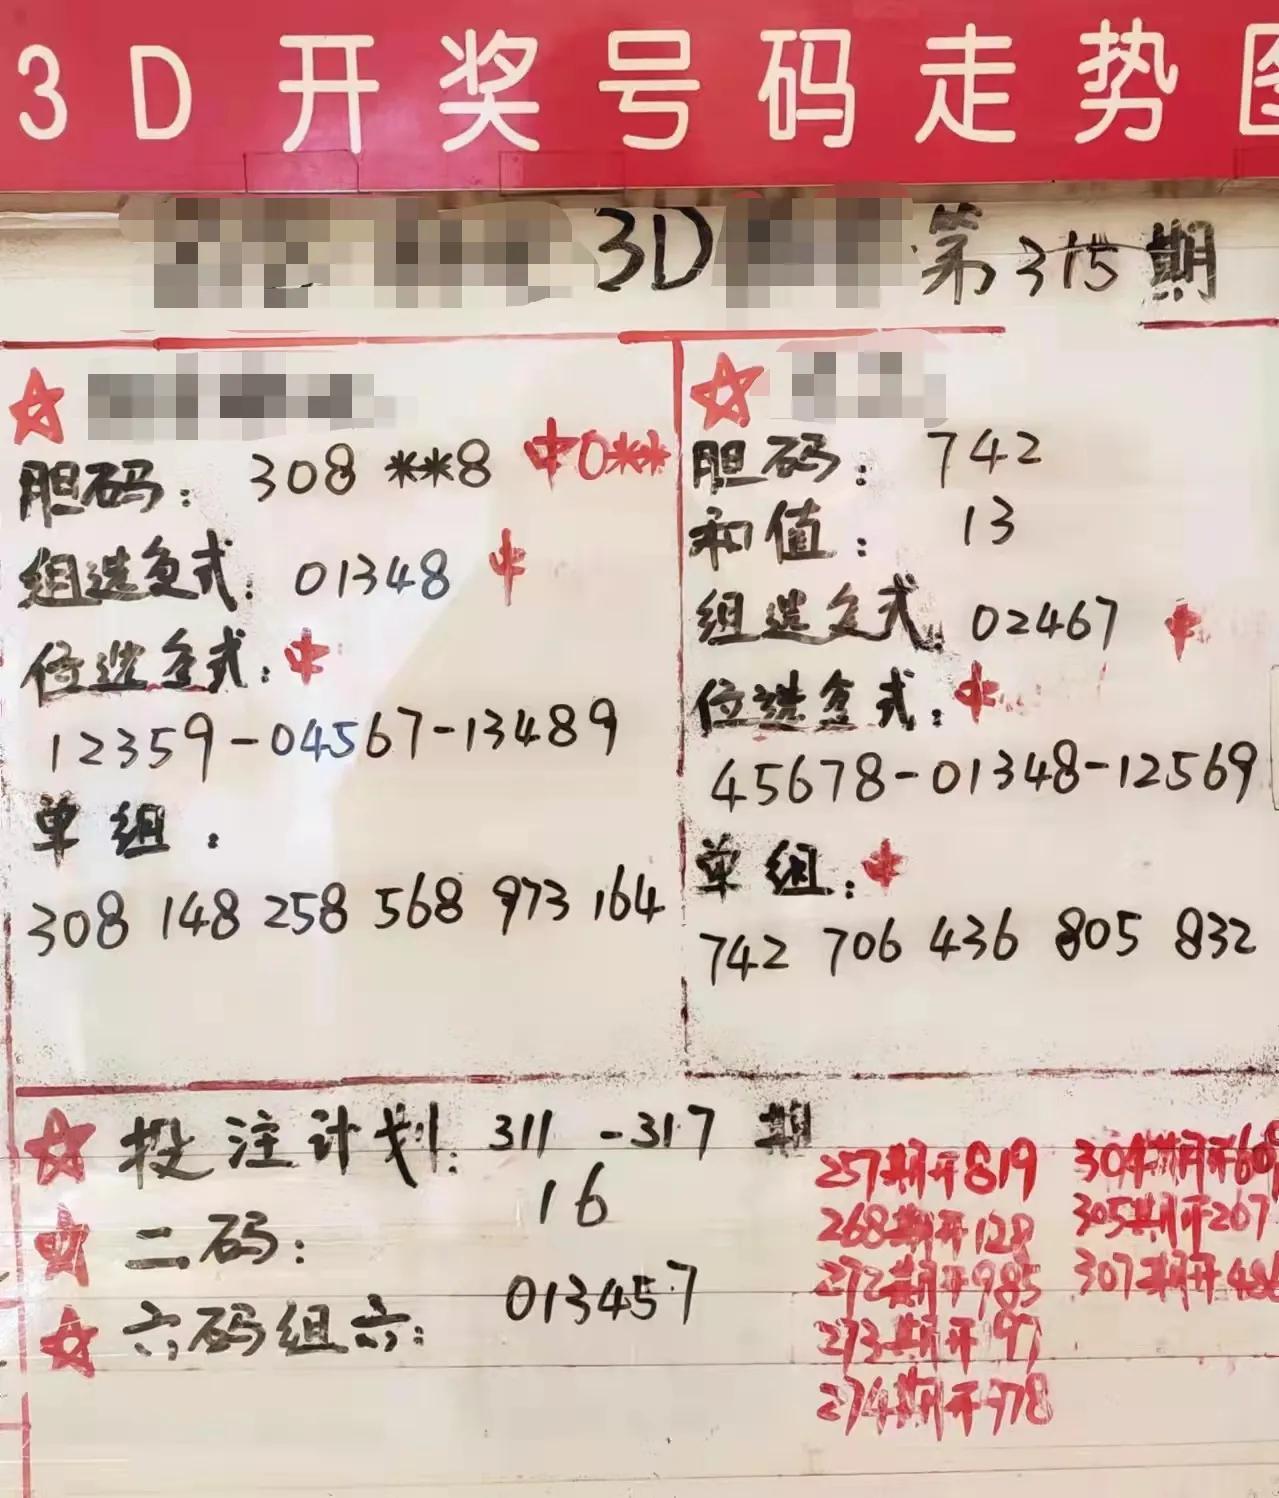 3D开奖号码走势图
3D 第315期
胆码: 308 **8 中0**
组选复式: 01348 中
位选复式: 中
12359-04567-13489
单组:
308 148 258 568 973 164
胆码: 742
和值: 13
组选复式: 02467 中
位选复式: 中
45678-01348-12569
单组: 中
742 706 436 805 832
投注计划: 311-317期
二码: 16
六码组六: 013457
257期开819
268期开128
272期开985
273期开
274期开978
304期开
305期开267
307期开